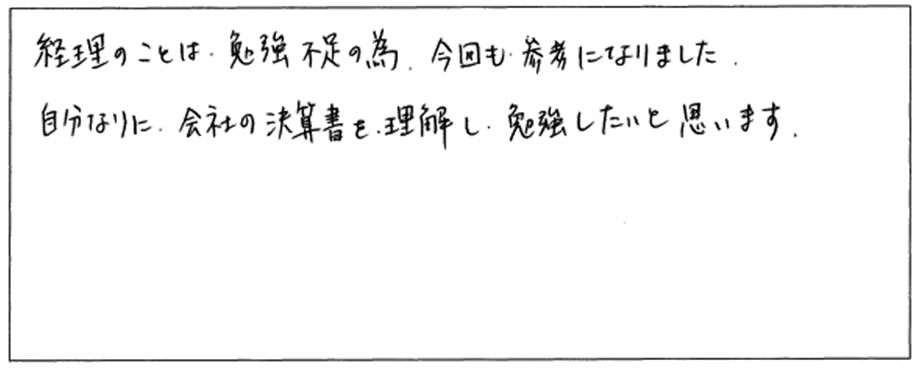 経理のことは、勉強不足の為、今回も、参考になりました。
自分なりに、会社の決算書を、理解し、勉強したいと思います。